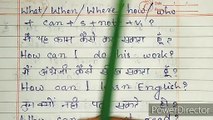 What / When / Where / how / who
+ can + S + not + V₁ ?
मैं यह काम कैसे कर सकता हूँ ?
How can I do this work?
मैं अंग्रेजी कैसे सीख सकता हूँ ?
How can I learn English?
तुम क्यों नहीं पढ़ सकते
PowerDirector